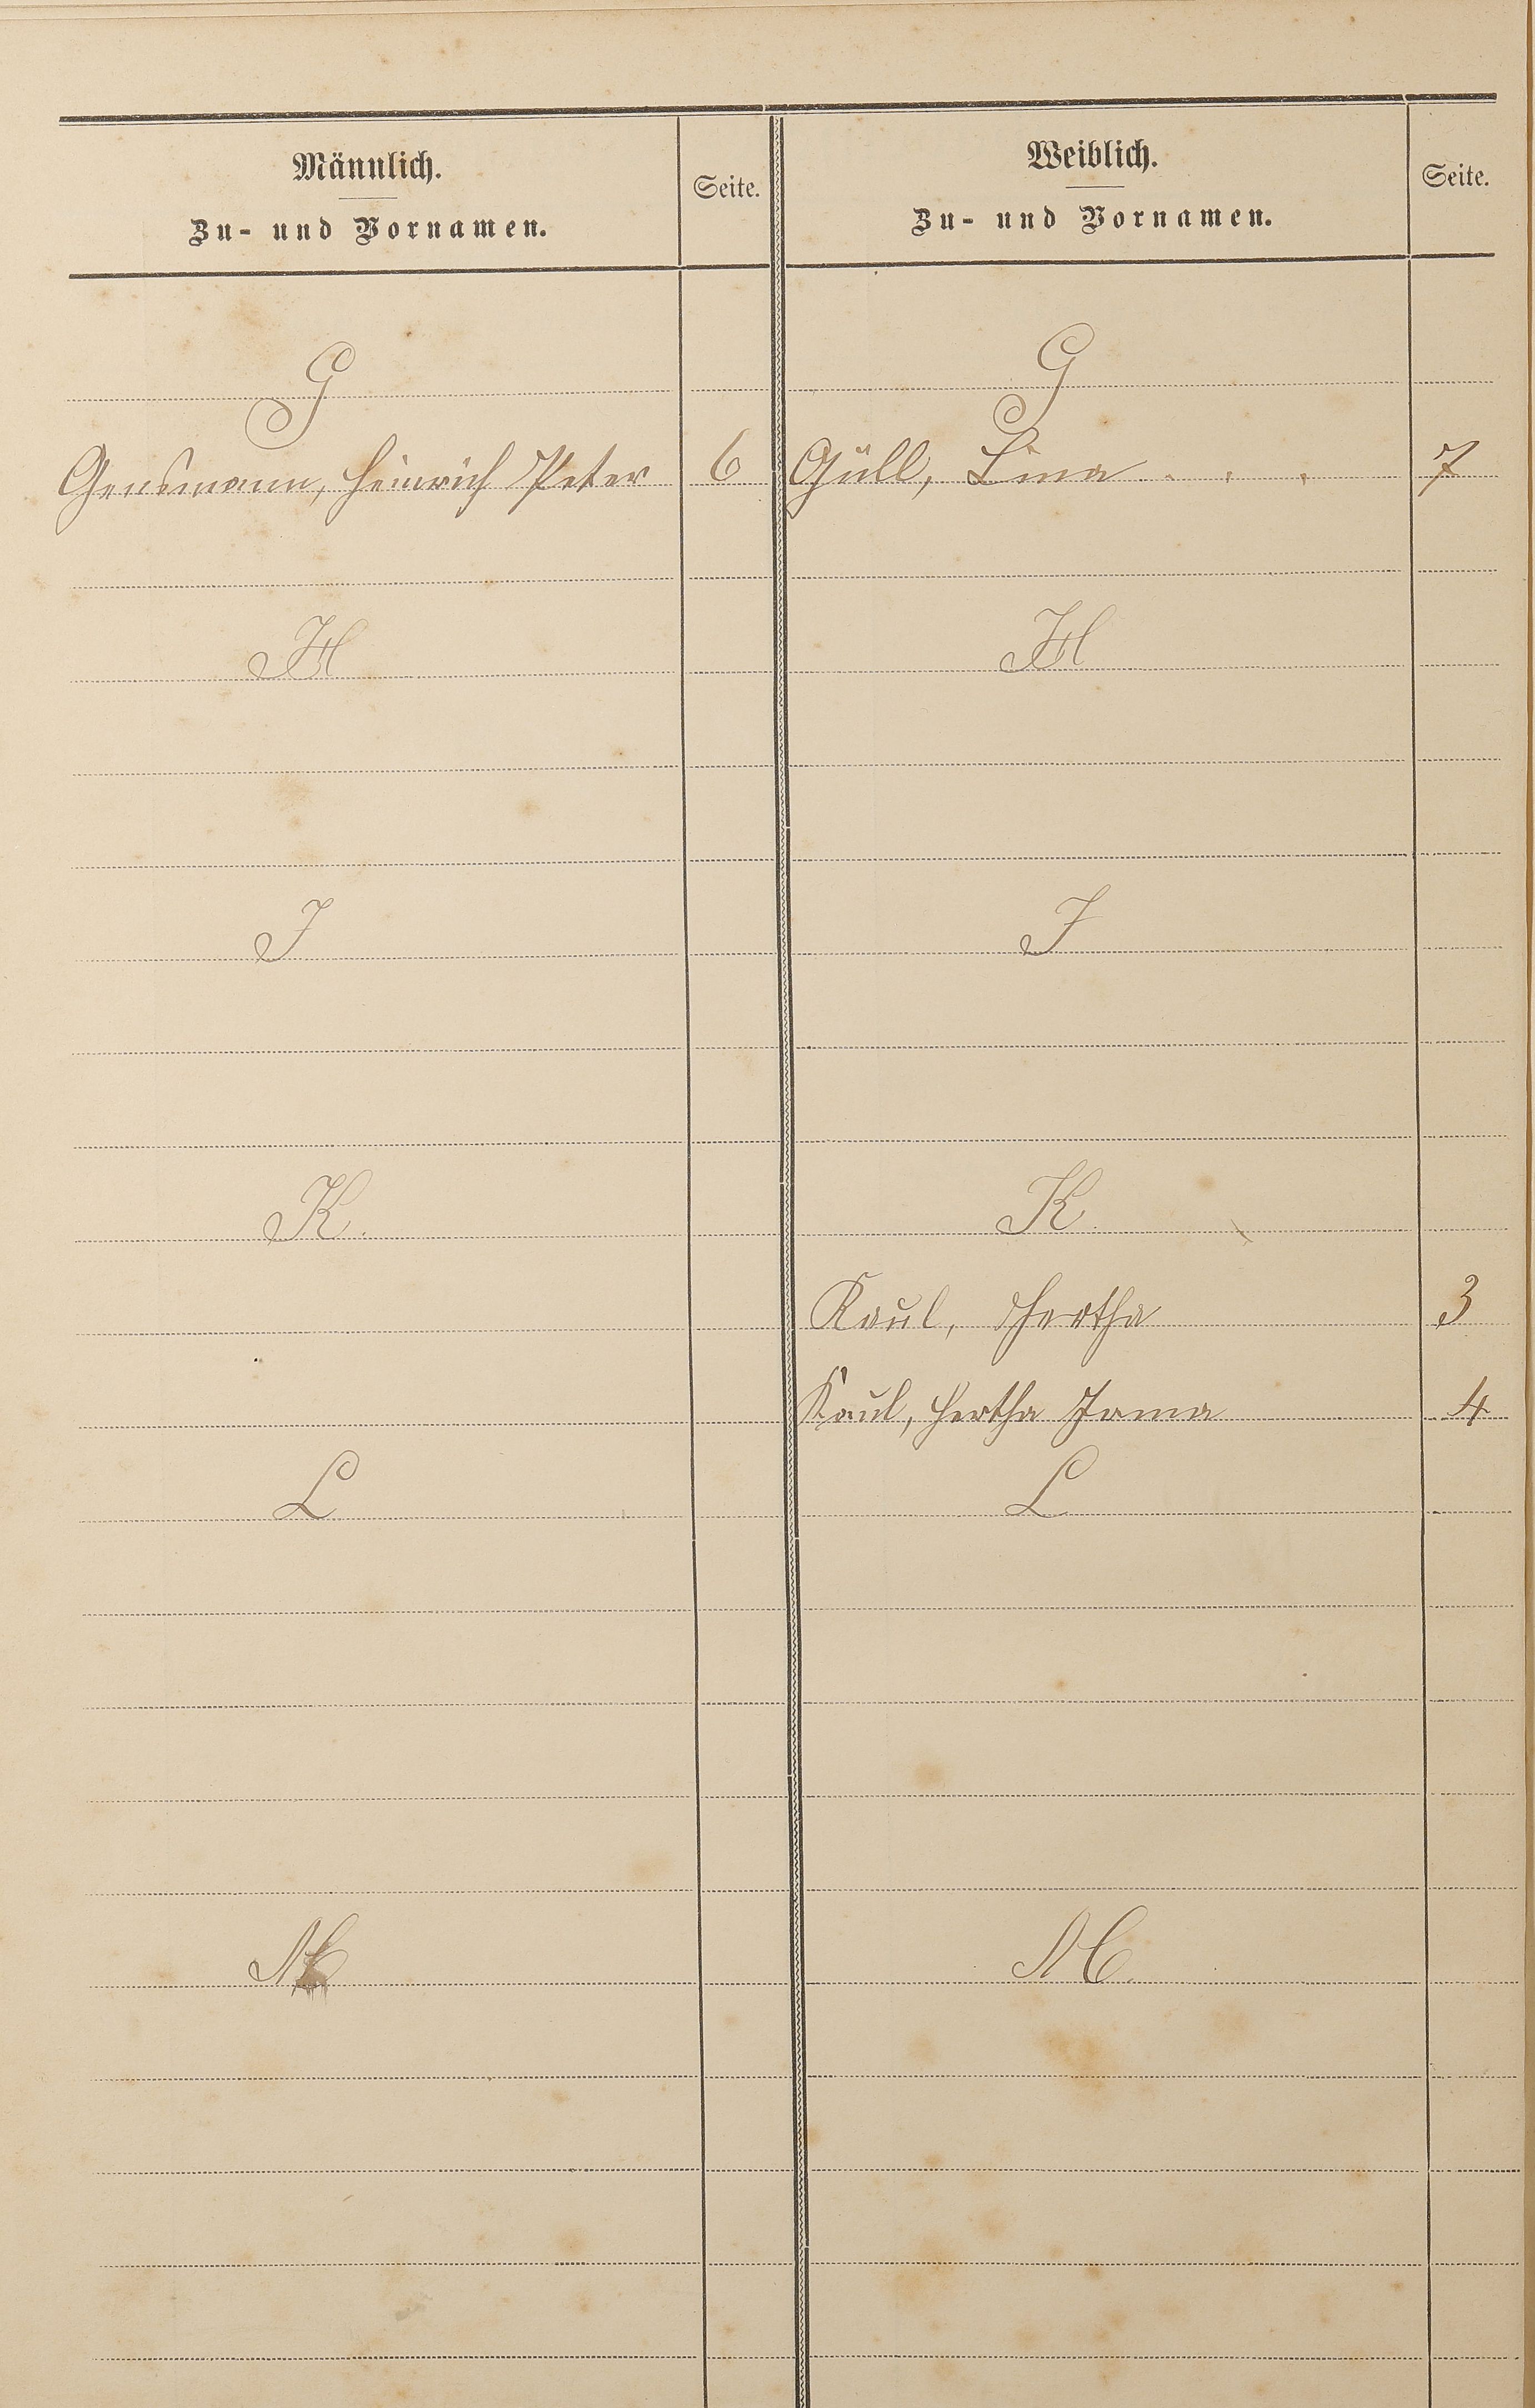 Männlich.
Zu- und Vornamen.
Seite.
Weiblich.
Zu- und Vornamen.
Seite.
G
G
Gensmann, Heinrich Peter 6
Güll, Lina . . . 7
H
H
J
J
K.
K.
Kaul, Hertha 3
Kaul, Hertha Irma 4
L
L
M
M.